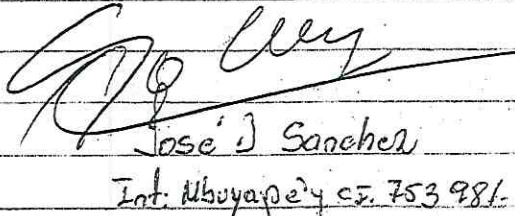 José D Sanchez
Int. Mbuyapey c.I. 753 981.